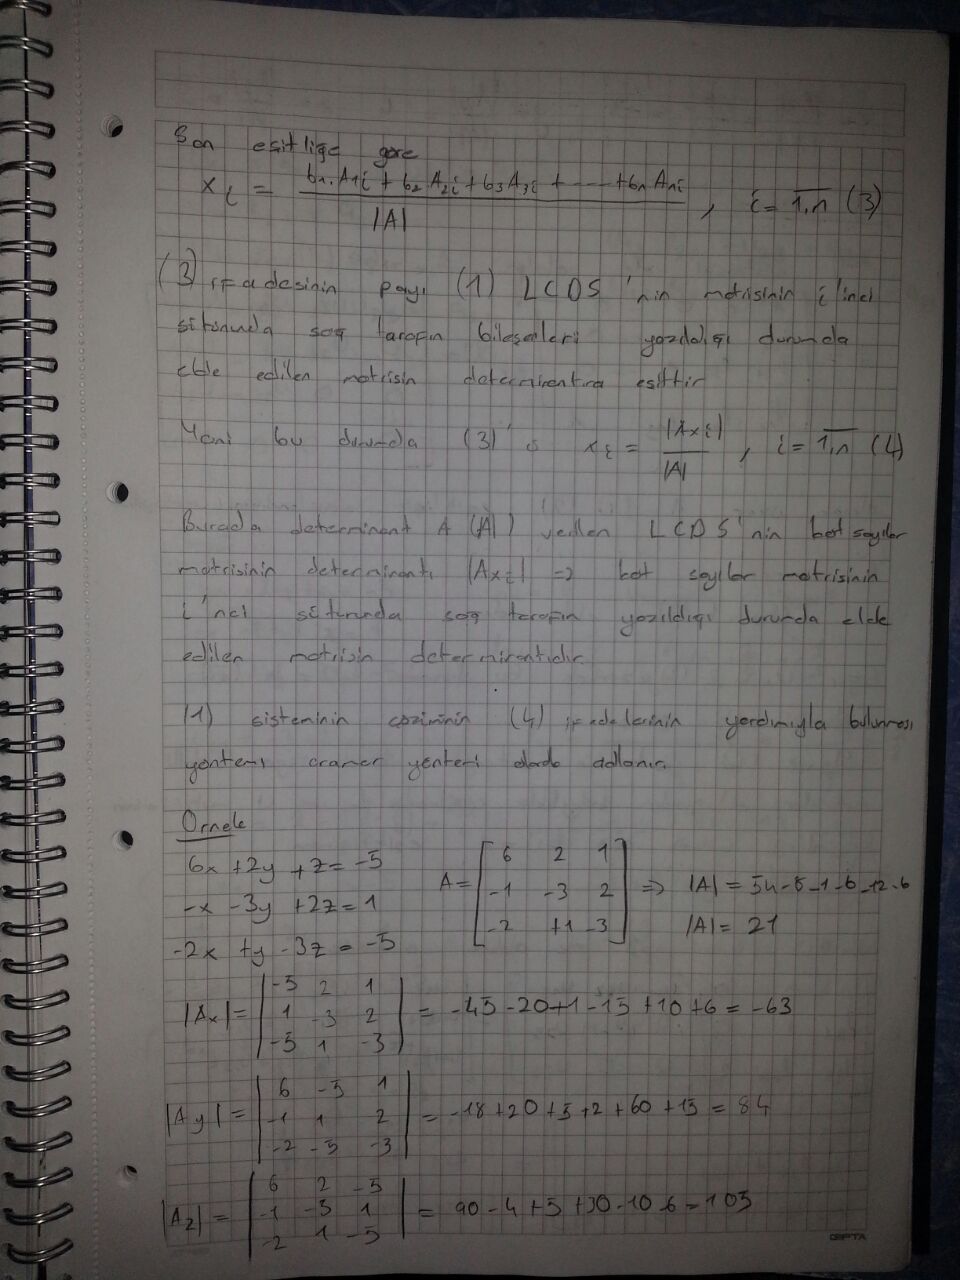 Son eşitliğe göre
x_i = (b1.A1i + b2 A2i + b3 A3i + ---- + bn Ani) / |A| , i = 1,n (3)
(3) ifadesinin payı (1) LCDS 'nin matrisinin i'inci
sütununda sağ tarafın bileşenleri yazıldığı durumda
elde edilen matrisin determinantına eşittir
Yani bu durumda (3)'ü x_i = |Axi| / |A| , i = 1,n (4)
Burada determinant A (|A|) verilen LCDS'nin kat sayılar
matrisinin determinantı |Axi| => kat sayılar matrisinin
i'nci sütununda sağ tarafın yazıldığı durumda elde
edilen matrisin determinantıdır.
(1) sisteminin çözümünün (4) ifadelerinin yardımıyla bulunması
yöntemi cramer yöntemi adlanır.
Örnek
6x + 2y + z = -5
-x - 3y + 2z = 1
-2x + y - 3z = -5
A = [ 6 2 1 / -1 -3 2 / -2 +1 -3 ] => |A| = 54 - 8 - 1 - 6 - 12 - 6
|A| = 21
|Ax| = | -5 2 1 / 1 -3 2 / -5 1 -3 | = -45 - 20 + 1 - 15 + 10 + 6 = -63
|Ay| = | 6 -5 1 / -1 1 2 / -2 -5 -3 | = -18 + 20 + 5 + 2 + 60 + 15 = 84
|Az| = | 6 2 -5 / -1 -3 1 / -2 1 -5 | = 90 - 4 + 5 + 30 - 10 - 6 = 105